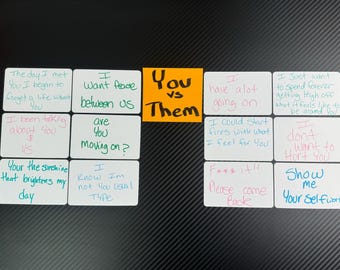 The day I met
You I began to
forget a life without
You
I
Want Peace
between us
You
vs
Them
I
have alot
going on
I Just want
to spend forever
getting High off
what it feels like to
be around You
I been talking
about You
&
Us
are
You
moving on?
I could start
fires with what
I feel for You
I
don't
Want to
Hurt You
Your the sunshine
that brightens my
day
I
Know Im
not You usual
TYPE
F*** it!!
Please come
Back
Show
me
Your self